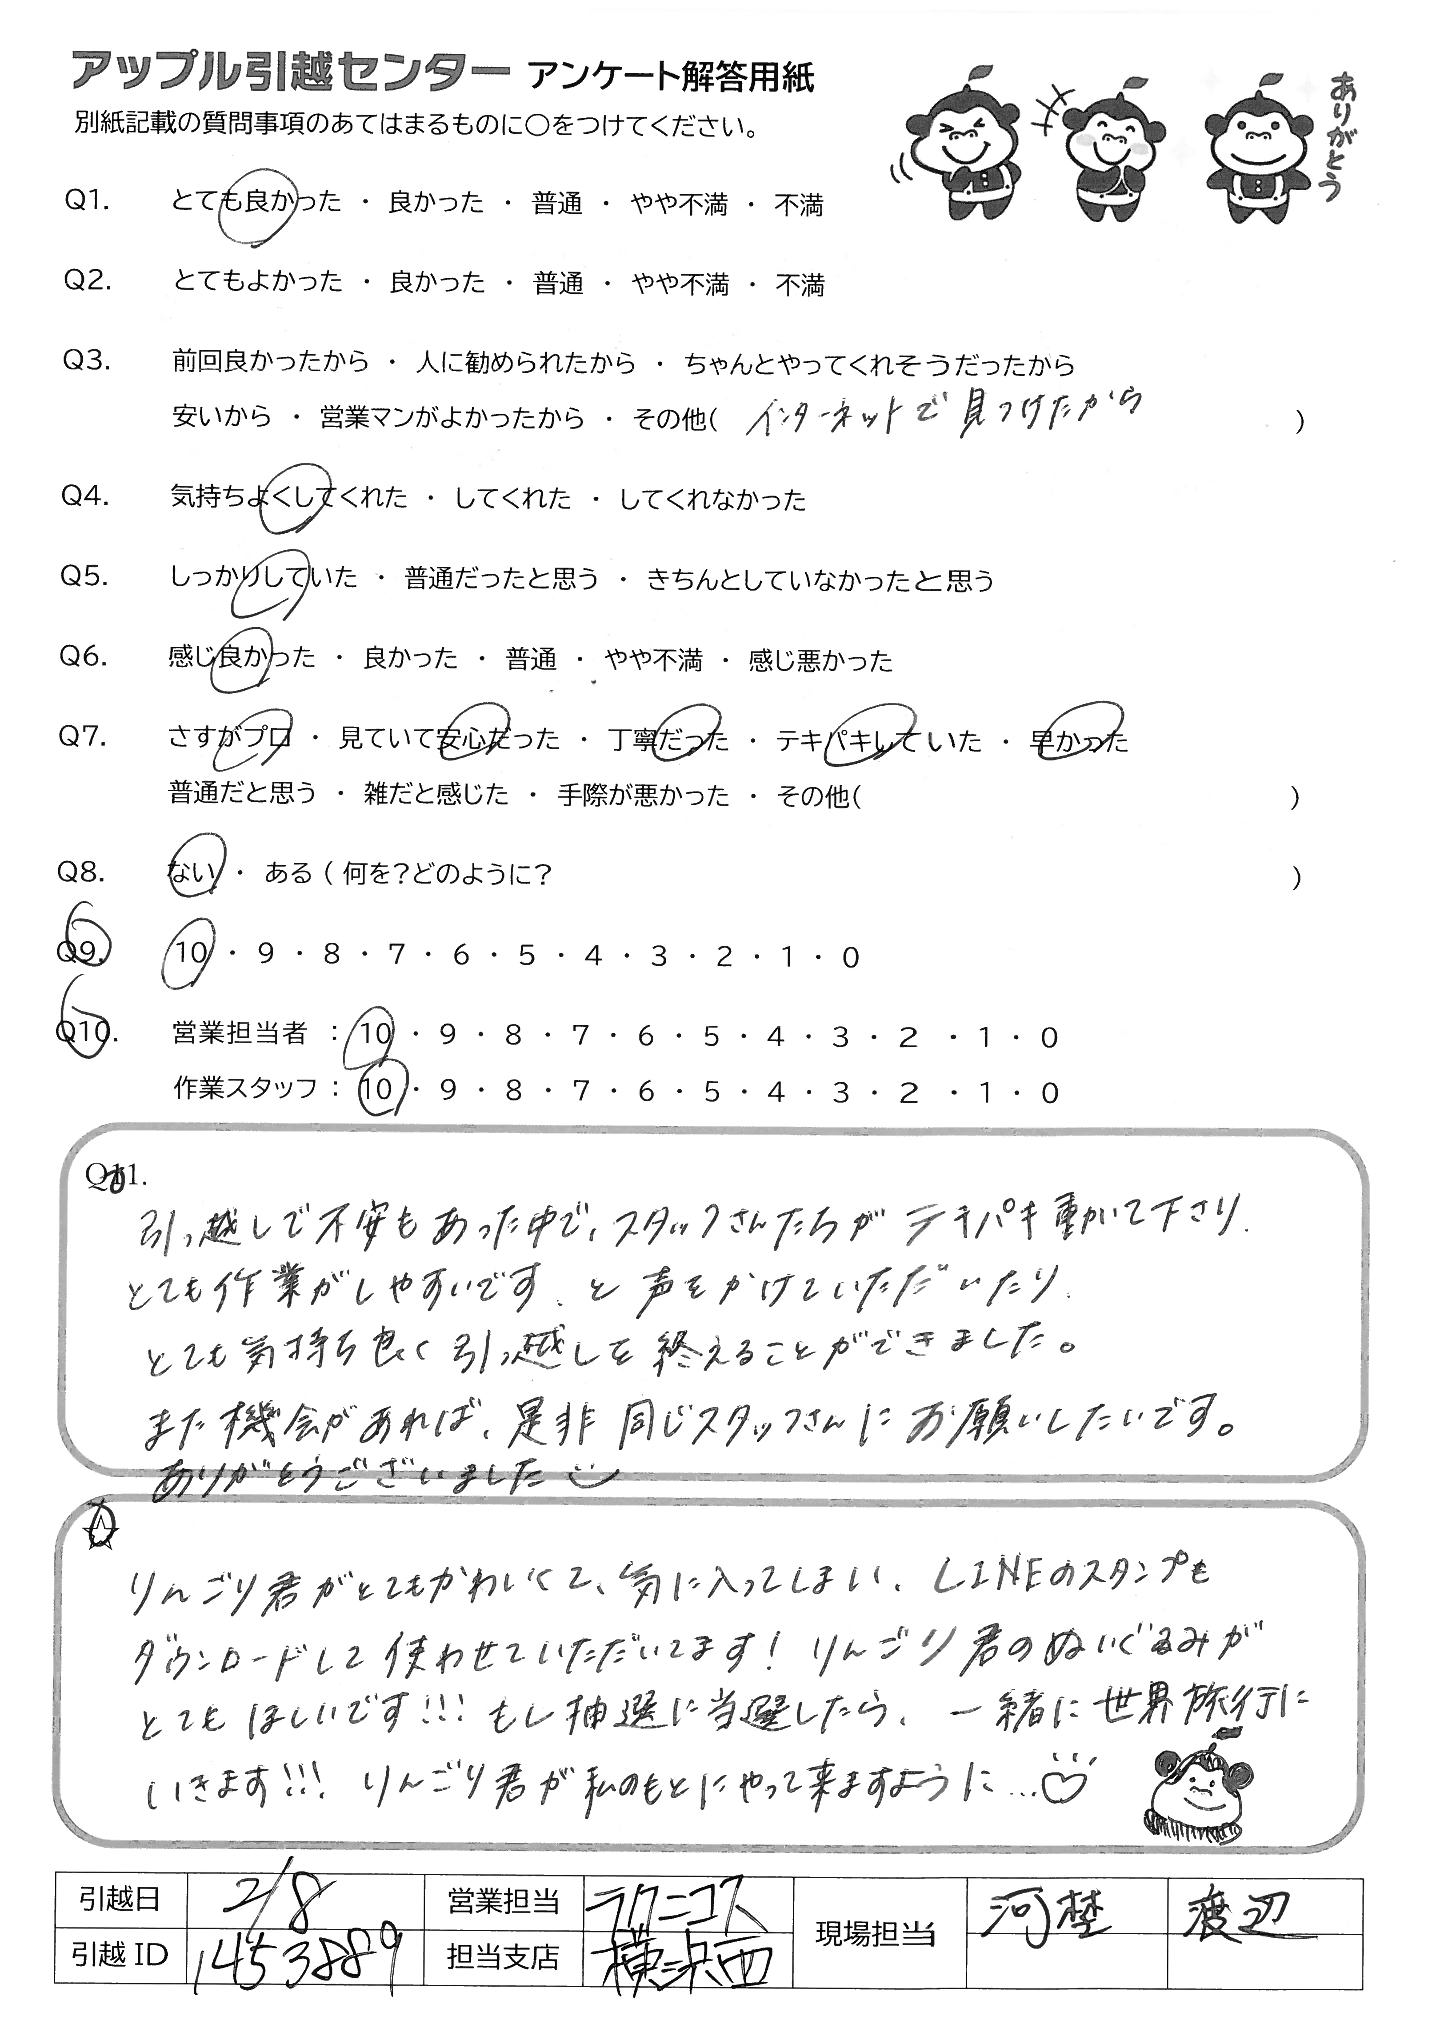 アップル引越センター アンケート解答用紙
別紙記載の質問事項のあてはまるものに○をつけてください。
ありがとう
Q1. とても良かった ・ 良かった ・ 普通 ・ やや不満 ・ 不満
Q2. とてもよかった ・ 良かった ・ 普通 ・ やや不満 ・ 不満
Q3. 前回良かったから ・ 人に勧められたから ・ ちゃんとやってくれそうだったから
安いから ・ 営業マンがよかったから ・ その他( インターネットで見つけたから )
Q4. 気持ちよくしてくれた ・ してくれた ・ してくれなかった
Q5. しっかりしていた ・ 普通だったと思う ・ きちんとしていなかったと思う
Q6. 感じ良かった ・ 良かった ・ 普通 ・ やや不満 ・ 感じ悪かった
Q7. さすがプロ ・ 見ていて安心だった ・ 丁寧だった ・ テキパキしていた ・ 早かった
普通だと思う ・ 雑だと感じた ・ 手際が悪かった ・ その他( )
Q8. ない ・ ある ( 何を?どのように? )
Q9. 10 ・ 9 ・ 8 ・ 7 ・ 6 ・ 5 ・ 4 ・ 3 ・ 2 ・ 1 ・ 0
Q10. 営業担当者 : 10 ・ 9 ・ 8 ・ 7 ・ 6 ・ 5 ・ 4 ・ 3 ・ 2 ・ 1 ・ 0
作業スタッフ : 10 ・ 9 ・ 8 ・ 7 ・ 6 ・ 5 ・ 4 ・ 3 ・ 2 ・ 1 ・ 0
Q11.
引っ越しで不安もあった中で、スタッフさんたちがテキパキ動いて下さり、
とても作業がしやすいです、と声をかけていただいたり、
とても気持ち良く引っ越しを終えることができました。
また機会があれば、是非同じスタッフさんにお願いしたいです。
ありがとうございました
☆
りんごり君がとてもかわいくて、気に入ってしまい、LINEのスタンプも
ダウンロードして使わせていただいてます!りんごり君のぬいぐるみが
とてもほしいです!!!もし抽選に当選したら、一緒に世界旅行に
いきます!!!りんごり君が私のもとにやって来ますように…
引越日 2/8 営業担当 ラクニコス 現場担当 河埜 渡辺
引越 ID 1453889 担当支店 横浜西